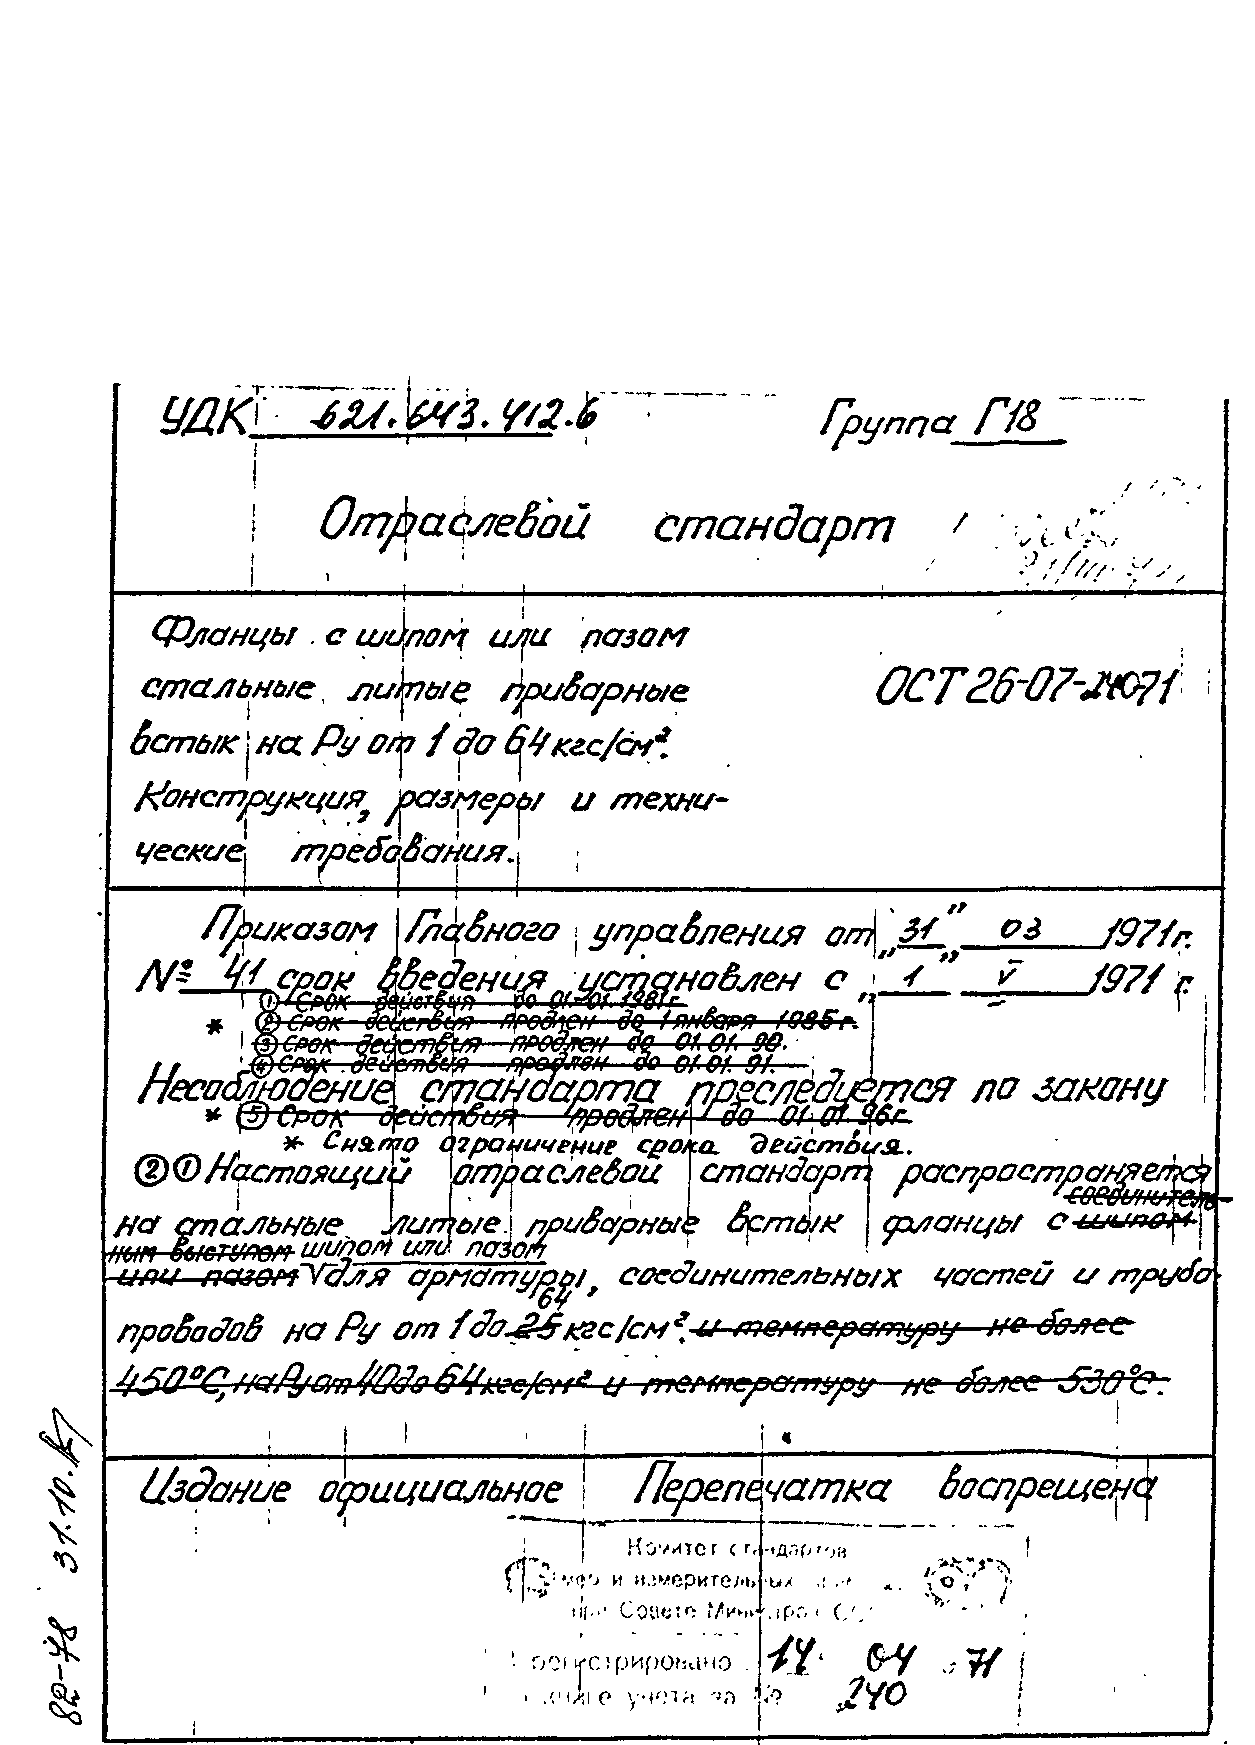 УДК 621.643.412.6 Группа Г18
Отраслевой стандарт
Фланцы с шипом или пазом
стальные литые приварные
встык на Ру от 1 до 64 кгс/см².
Конструкция, размеры и техни-
ческие требования.
ОСТ 26-07-240-71
Приказом Главного управления от „31” 03 1971г.
№ 41 срок введения установлен с „1” V 1971 г.
① Срок действия до 01.01.1981г.
* ② Срок действия продлен до 1 января 1985г.
③ Срок действия продлен до 01.01.90.
④ Срок действия продлен до 01.01.91.
Несоблюдение стандарта преследуется по закону
* ⑤ Срок действия продлен до 01.01.96г.
* Снято ограничение срока действия.
②① Настоящий отраслевой стандарт распространяется
соединитель-
на стальные литые приварные встык фланцы с шипом
ным выступом шипом или пазом
или пазом V для арматуры, соединительных частей и трубо-
64
проводов на Ру от 1 до 25 кгс/см². и температуру не более
450°С, на Ру от 40 до 64 кгс/см² и температуру не более 530°С.
Издание официальное Перепечатка воспрещена
Комитет стандартов
мер и измерительных
при Совете Министров СССР
14 04 71
учета за № 240
82-78 31.10.